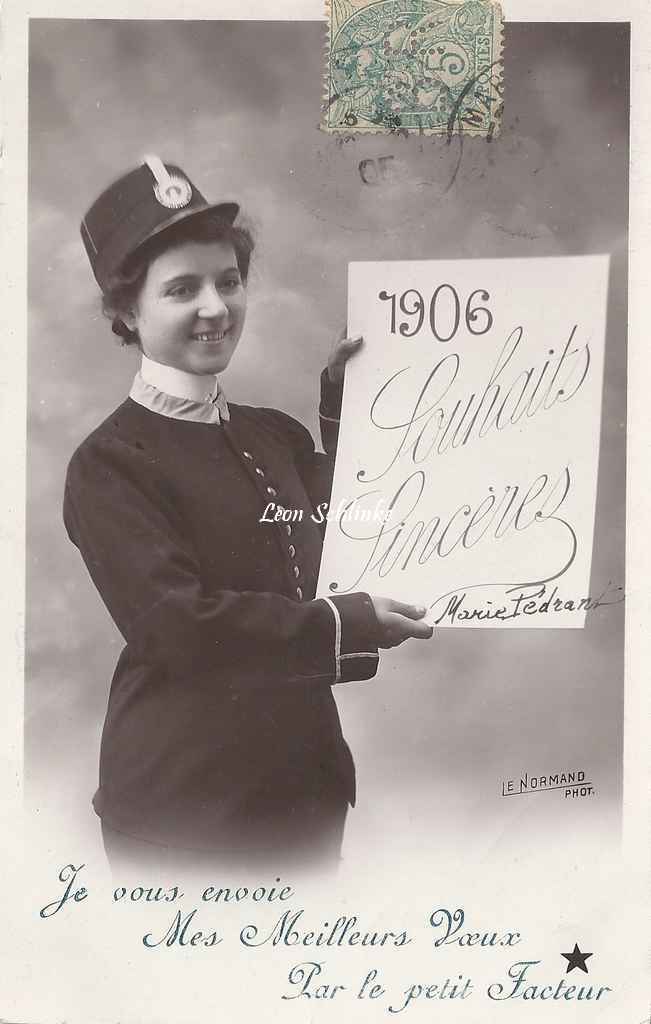 5
POSTES
05
1906
Souhaits
Sincères
Léon Schlinke
Marie Pédrant
LE NORMAND
PHOT.
Je vous envoie
Mes Meilleurs Vœux
Par le petit Facteur